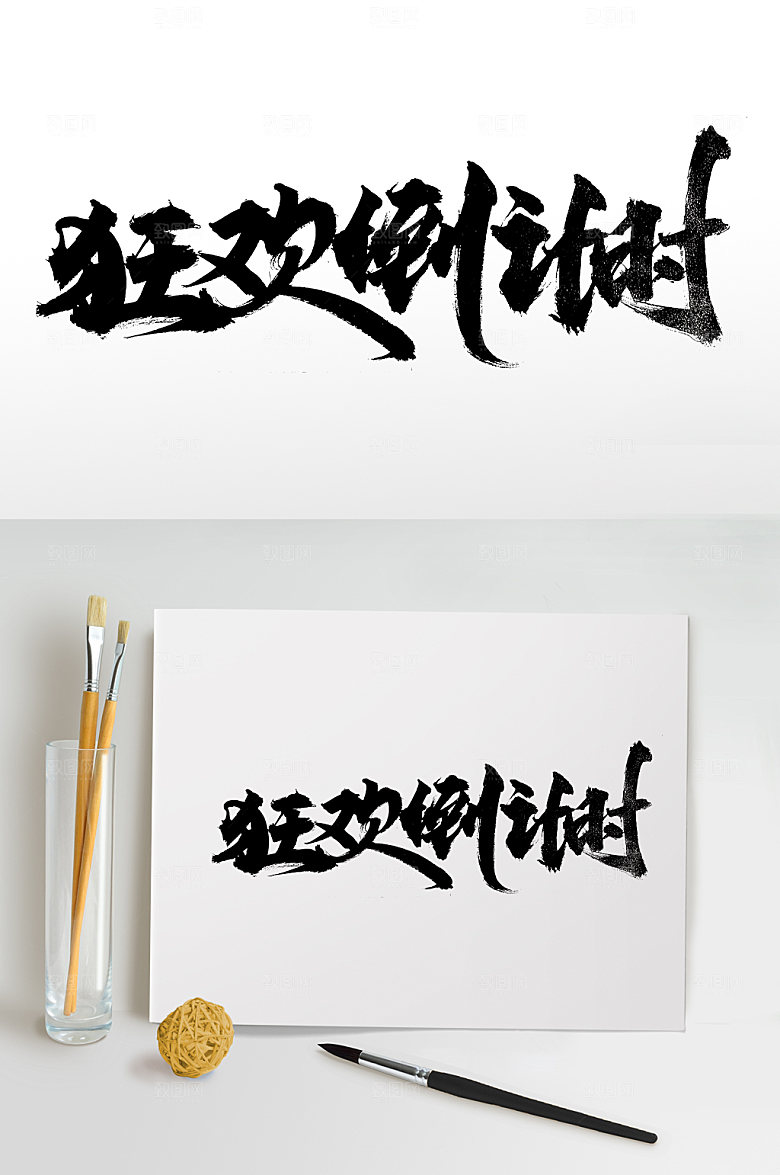 狂欢倒计时
狂欢倒计时